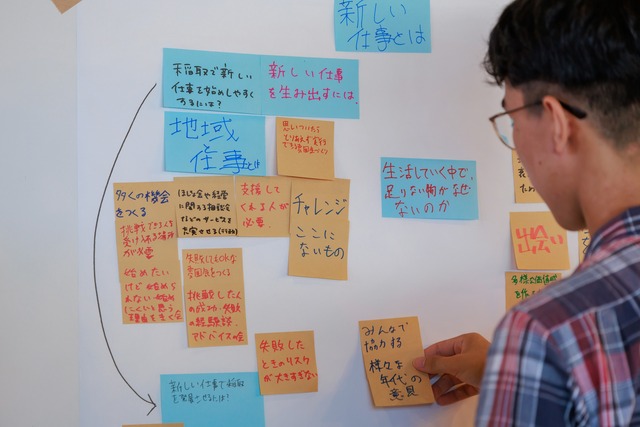 新しい
仕事とは
稲取で新しい
仕事を始めしやすく
するには?
新しい仕事
を生み出すには、
地域
仕事とは
思いついたら
とりあえず実行
できる雰囲気づくり
生活していく中で、
足りない物がなぜ
ないのか
多くの機会
をつくる
挑戦できる人を
受け入れる場所
が必要
始めたい
けど始めら
れない 始め
にくいと思う
理由を書く会
ほじょ金や経営
に関する相談会
などのサービスを
充実させる
支援して
くれる人が
必要、
チャレンジ
ここに
ないもの
失敗してもOKな
雰囲気をつくる
挑戦した人
の成功、失敗
の経験談、
アドバイスの会
失敗した
ときのリスク
が大きすぎない
みんなで
協力する
様々な
年代の
意見
新しい仕事で稲取
を発展させるには!
出会い